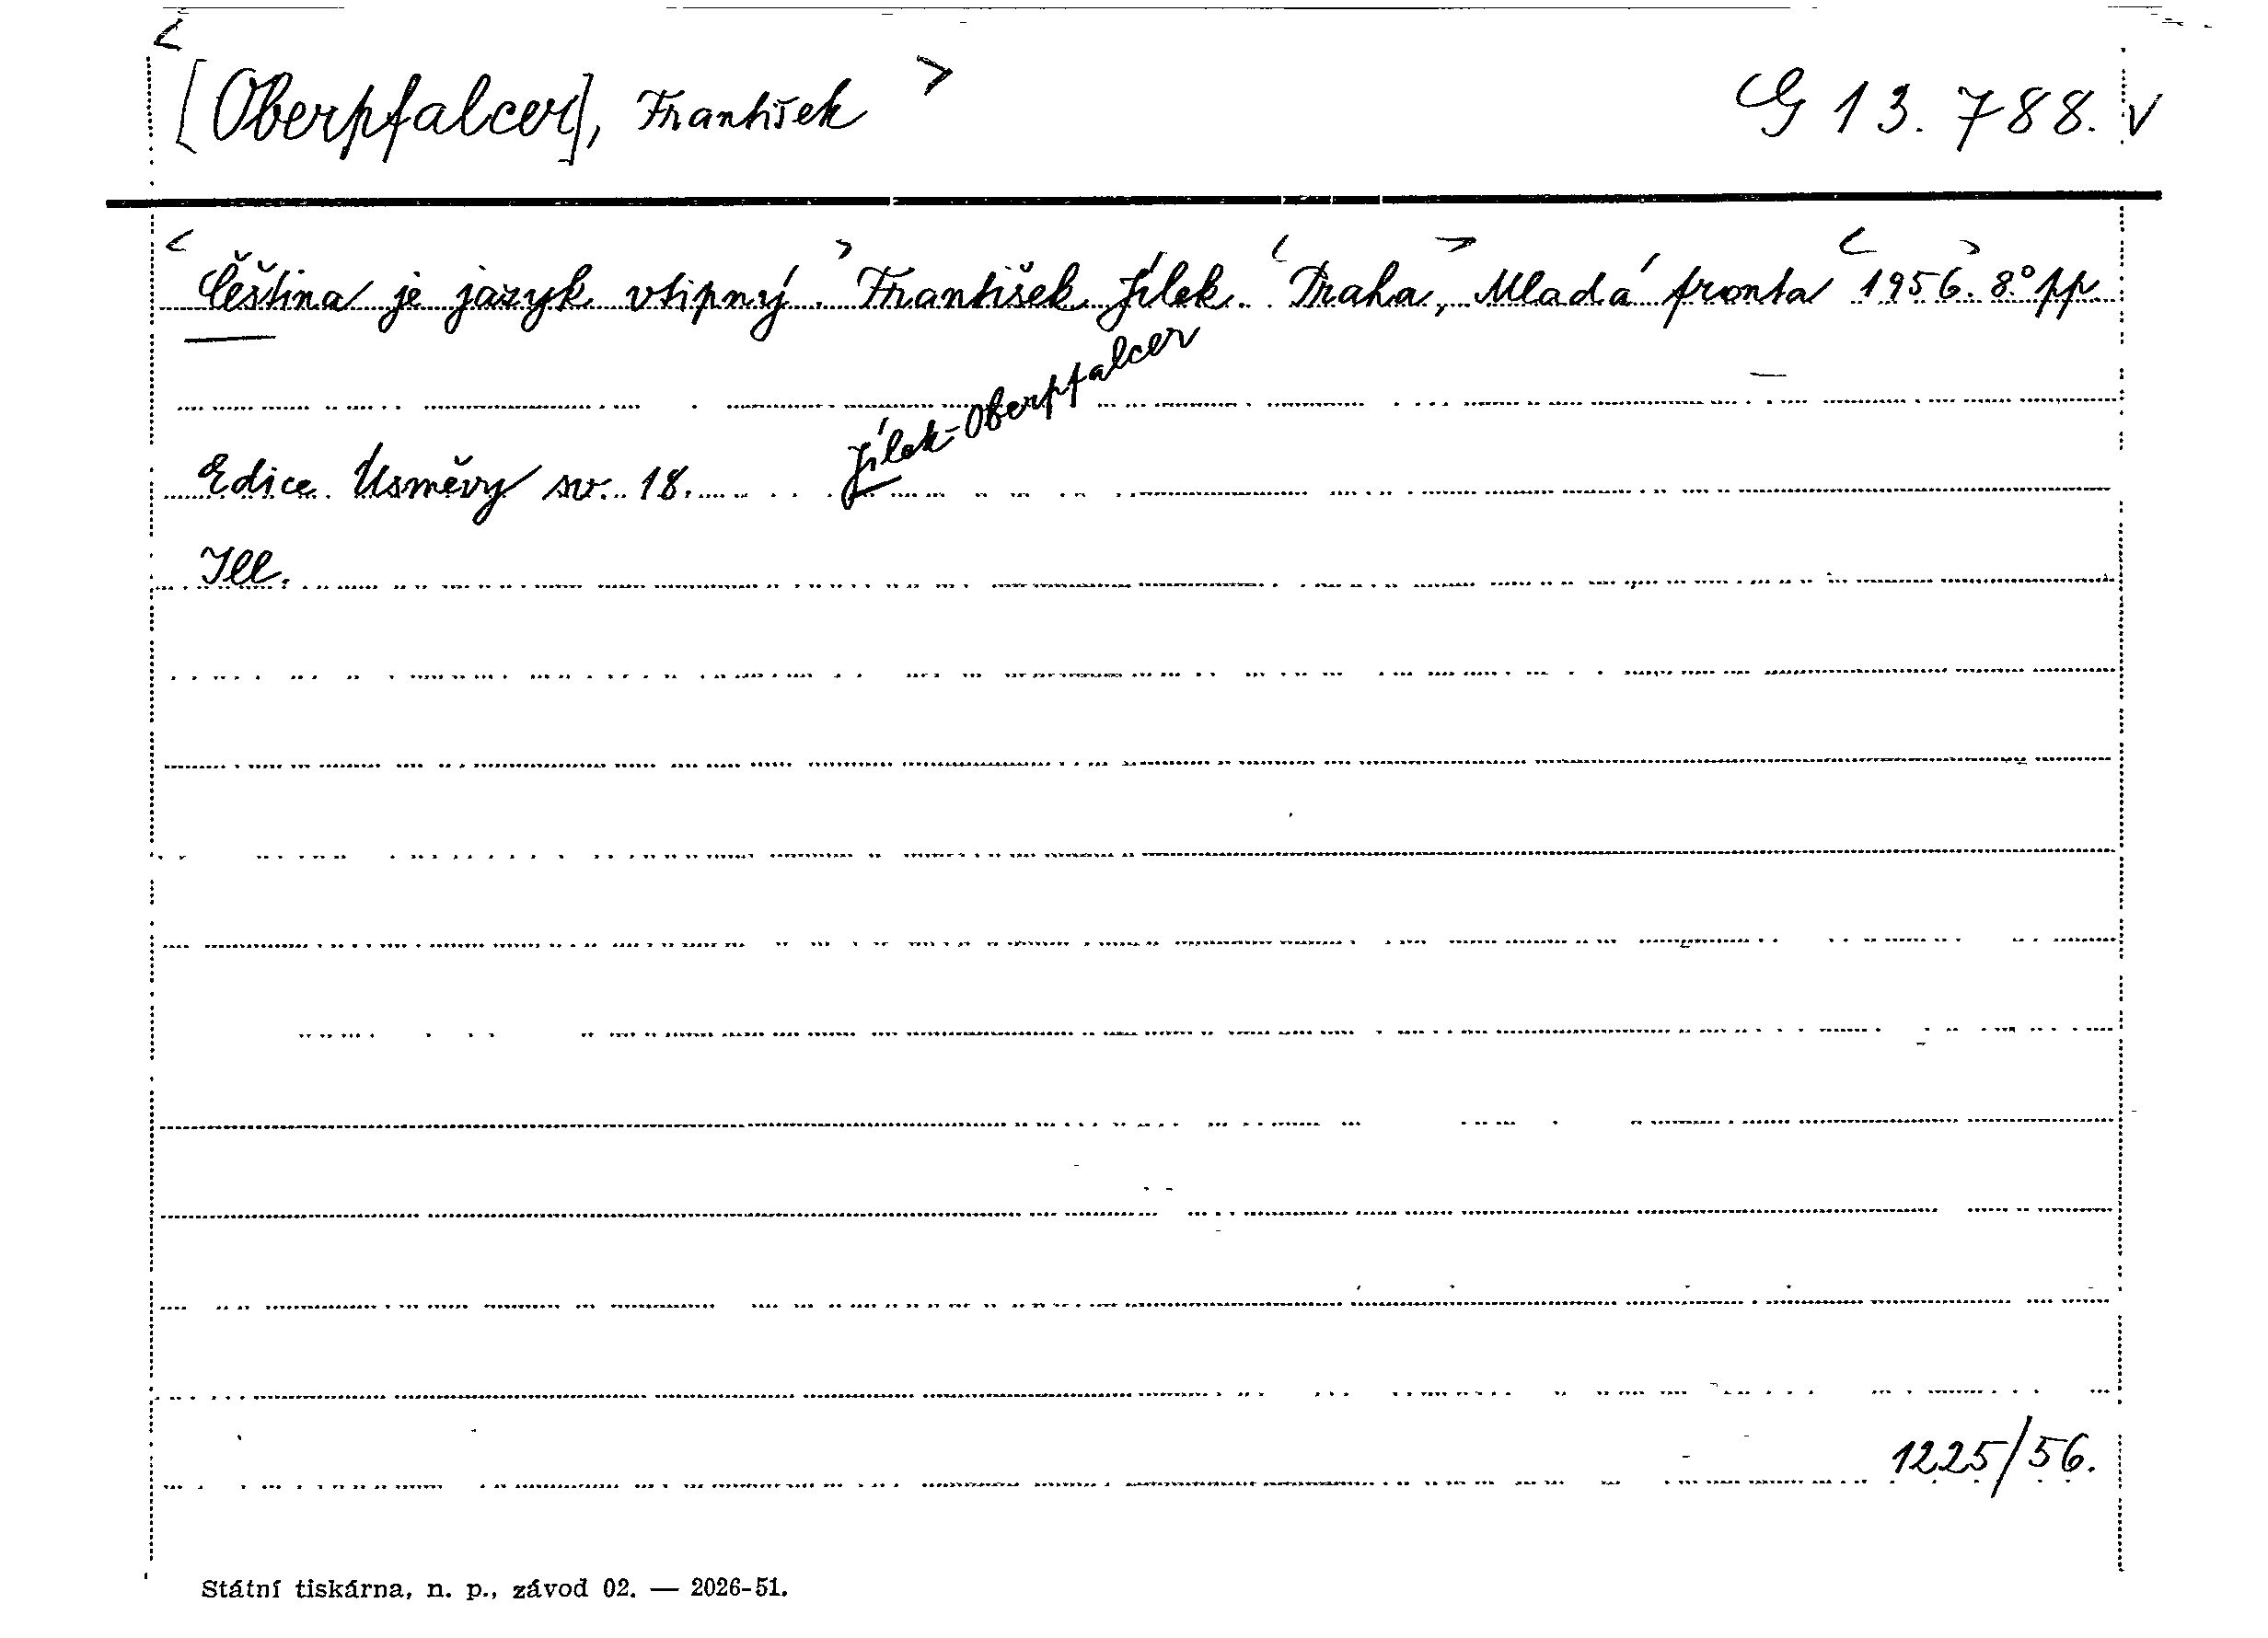 < [Oberpfalcer], František > G 13.788. v
< Čeština je jazyk vtipný. > František Jílek. < Praha, > Mladá fronta < 1956. > 8° pp.
Jílek-Oberpfalcer
Edice Úsměvy sv. 18.
Ill.
1225/56.
Státní tiskárna, n. p., závod 02. — 2026-51.